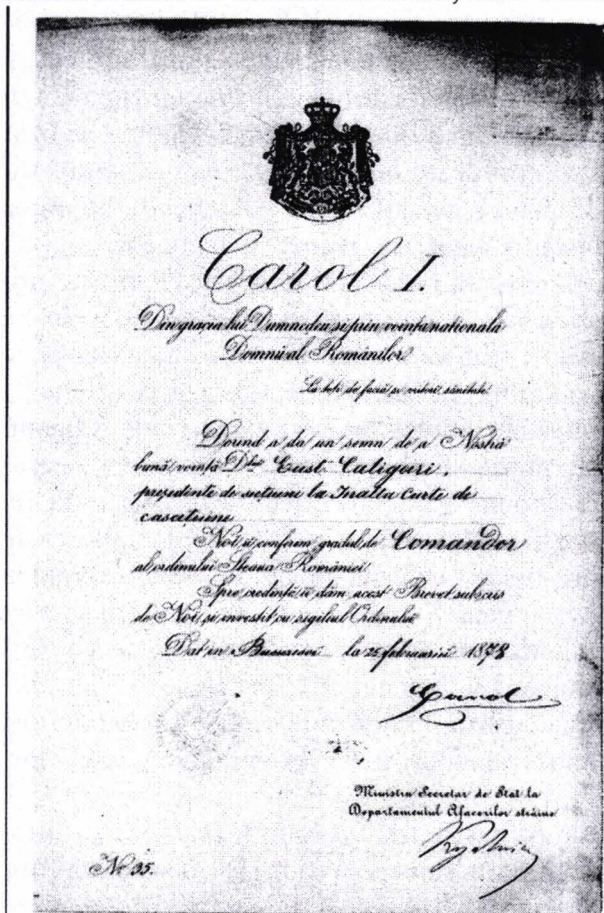 Carol I.
Din gracia lui Dumnedeu și prin voința natională
Domnŭ al Românilor
La toți de faciă și viitori sănătate.
Voind a da un semn de a Nostră
bună voință Dlui Eust. Caligari,
președinte de secțiune la Inalta Curte de
casațiune
Noi îi conferim gradul de Comandor
al ordinului Steaua României
Spre credință îi dăm acest Brevet subscris
de Noi și investit cu sigiliul Ordinului
Dat in Bucuresci la 22 februariŭ 1878
Carol
Ministru Secretar de Stat la
Departamentul Afacerilor străine
No 35.